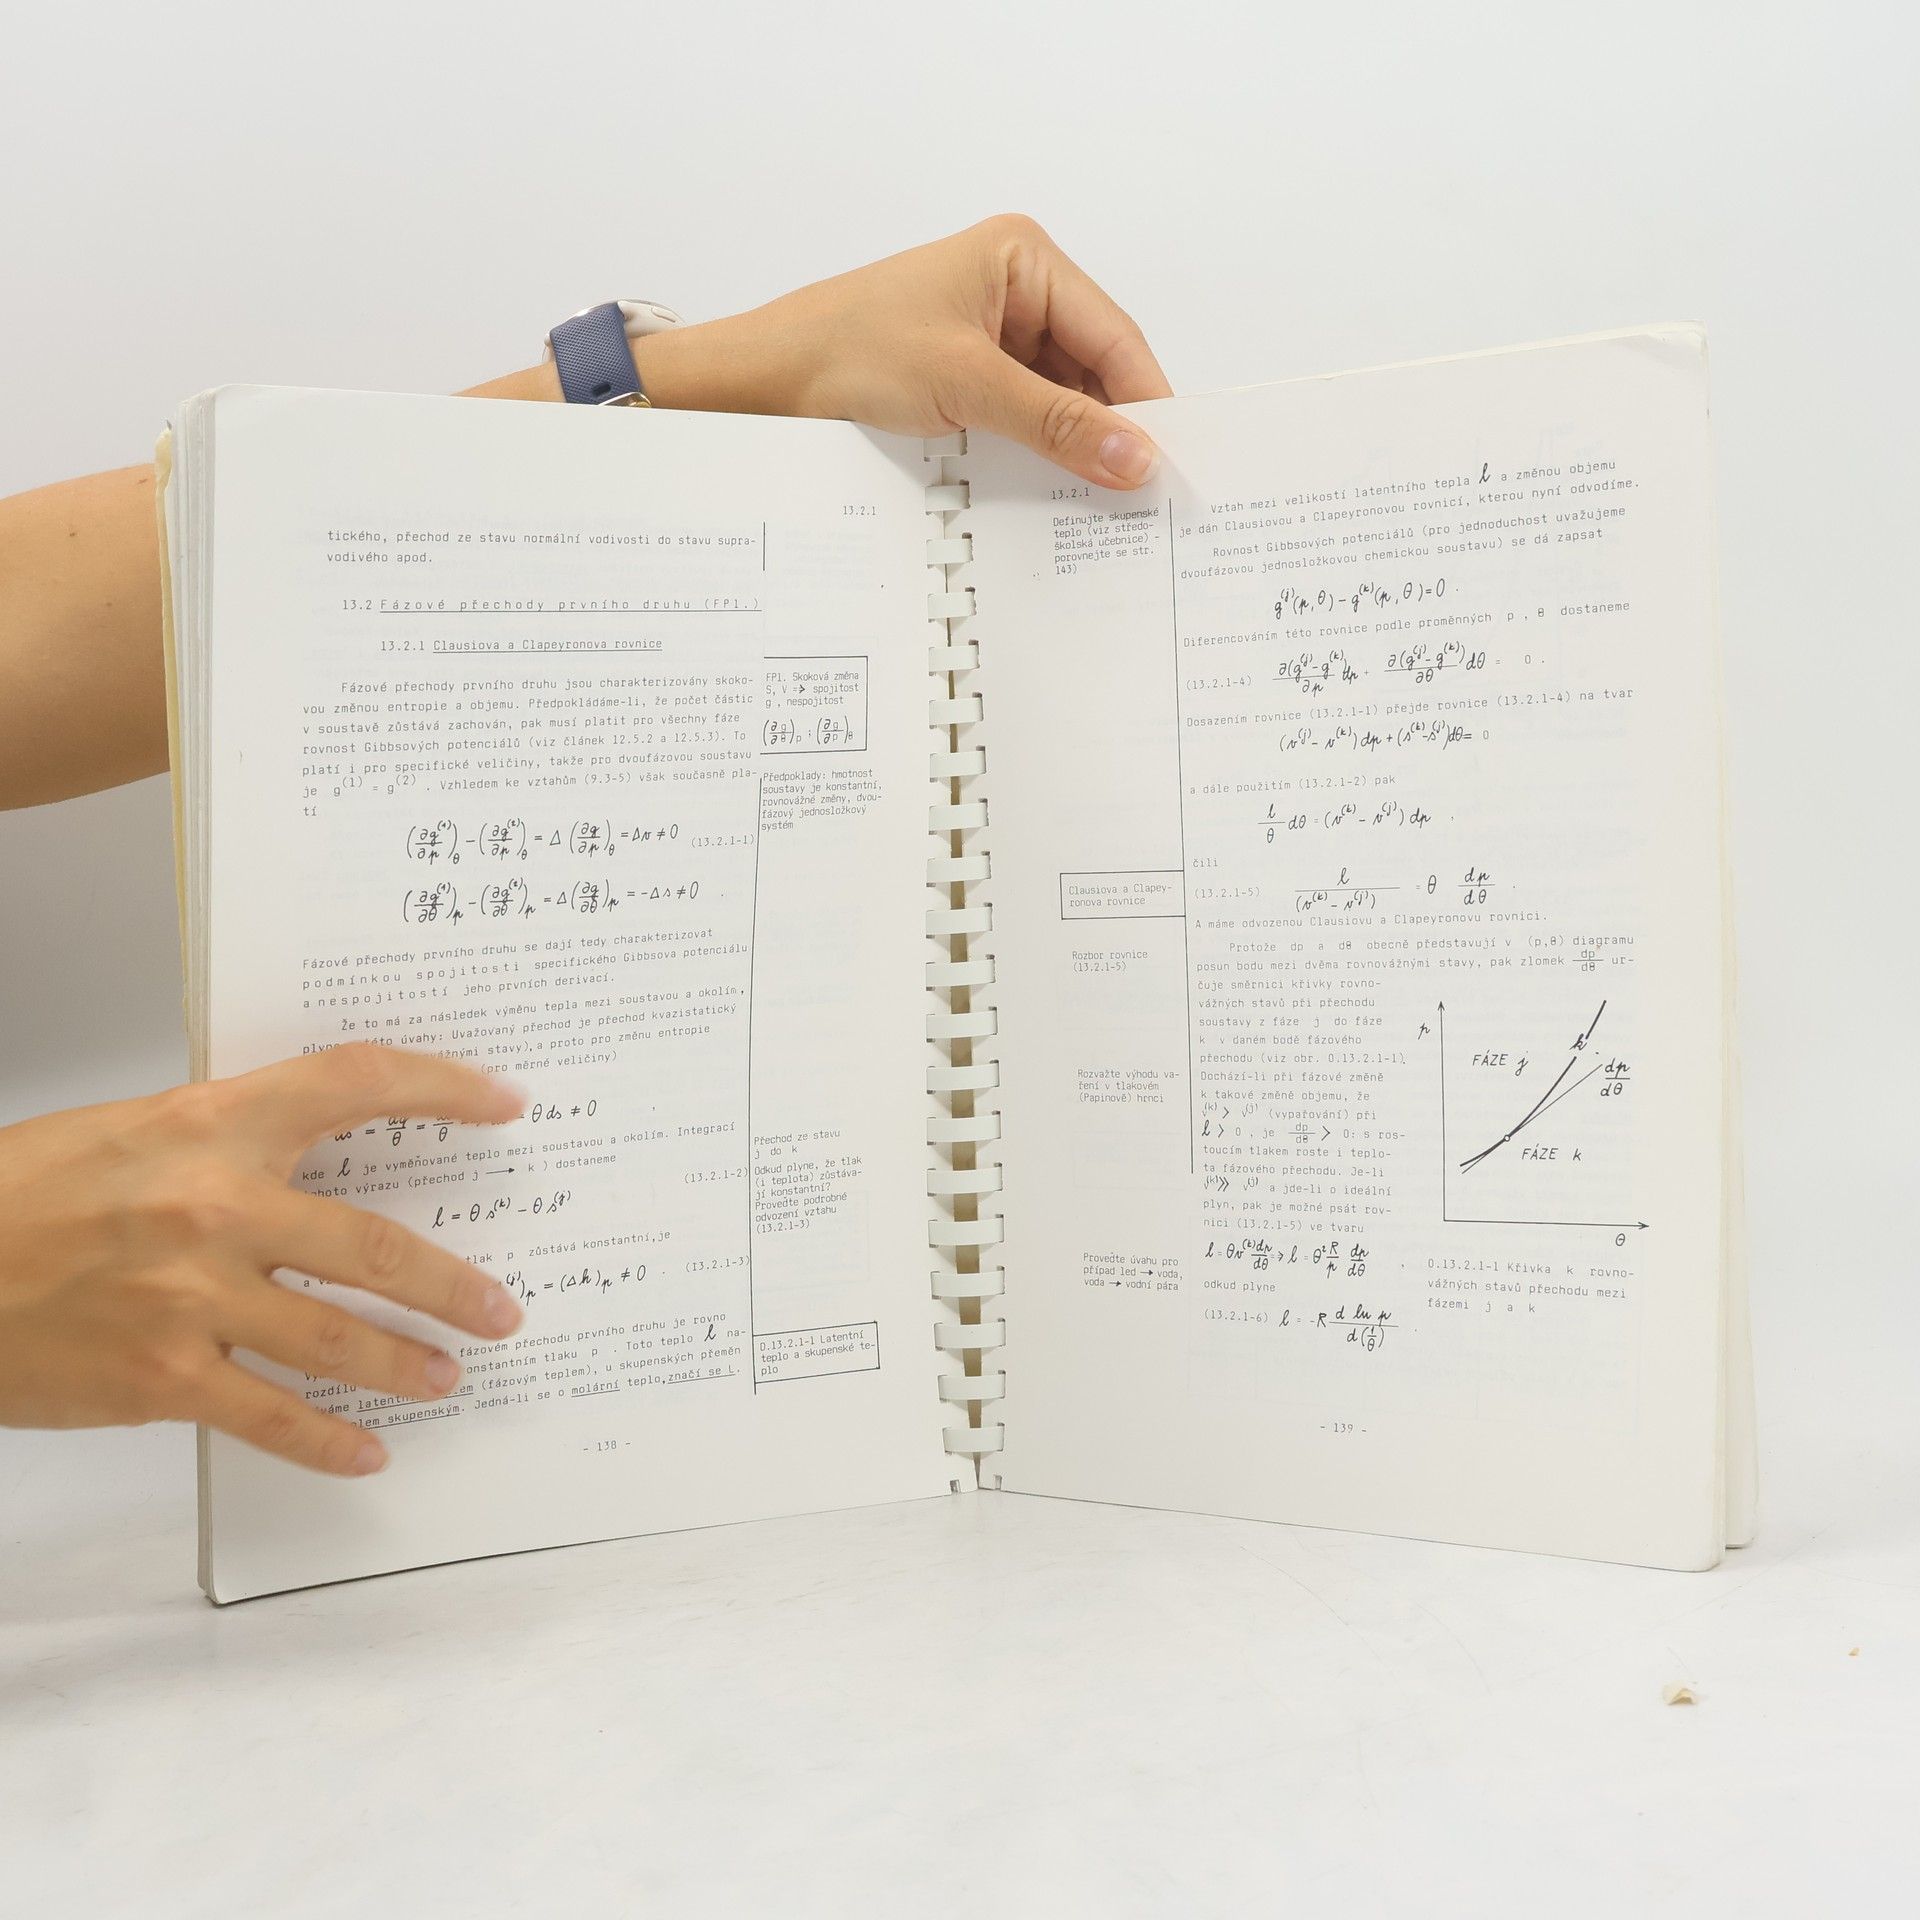 13.2.1
tického, přechod ze stavu normální vodivosti do stavu supra-
vodivého apod.
13.2 Fázové přechody prvního druhu (FP1.)
13.2.1 Clausiova a Clapeyronova rovnice
Fázové přechody prvního druhu jsou charakterizovány skoko-
vou změnou entropie a objemu. Předpokládáme-li, že počet částic
v soustavě zůstává zachován, pak musí platit pro všechny fáze
rovnost Gibbsových potenciálů (viz článek 12.5.2 a 12.5.3). To
platí i pro specifické veličiny, takže pro dvoufázovou soustavu
je g^(1) = g^(2) . Vzhledem ke vztahům (9.3-5) však současně pla-
tí
(∂g^(1)/∂p)_θ − (∂g^(2)/∂p)_θ = Δ (∂g/∂p)_θ = Δv ≠ 0 (13.2.1-1)
(∂g^(1)/∂θ)_p − (∂g^(2)/∂θ)_p = Δ(∂g/∂θ)_p = −Δs ≠ 0 .
Fázové přechody prvního druhu se dají tedy charakterizovat
podmínkou spojitosti specifického Gibbsova potenciálu
a nespojitostí jeho prvních derivací.
Že to má za následek výměnu tepla mezi soustavou a okolím,
plyne této úvahy: Uvažovaný přechod je přechod kvazistatický
stavy), a proto pro změnu entropie
(pro měrné veličiny)
θ ds ≠ 0 ,
kde l je vyměňované teplo mezi soustavou a okolím. Integrací
tohoto výrazu (přechod j → k ) dostaneme
(13.2.1-2)
l = θ s^(k) − θ s^(j)
tlak p zůstává konstantní, je
= (Δh)_p ≠ 0 . (13.2.1-3)
fázovém přechodu prvního druhu je rovno
rozdílu konstantním tlaku p . Toto teplo l na-
(fázovým teplem), u skupenských přeměn
skupenským. Jedná-li se o molární teplo, značí se L.
FP1. Skoková změna
S, V => spojitost
g , nespojitost
(∂g/∂θ)_p ; (∂g/∂p)_θ
Předpoklady: hmotnost
soustavy je konstantní,
rovnovážné změny, dvou-
fázový jednosložkový
systém
Přechod ze stavu
j do k
Odkud plyne, že tlak
(i teplota) zůstáva-
jí konstantní?
Proveďte podrobné
odvození vztahu
(13.2.1-3)
D.13.2.1-1 Latentní
teplo a skupenské te-
plo
- 138 -
13.2.1
Definujte skupenské
teplo (viz středo-
školská učebnice) -
porovnejte se str.
143)
Clausiova a Clapey-
ronova rovnice
Rozbor rovnice
(13.2.1-5)
Rozvažte výhodu va-
ření v tlakovém
(Papinově) hrnci
Proveďte úvahu pro
případ led → voda,
voda → vodní pára
Vztah mezi velikostí latentního tepla l a změnou objemu
je dán Clausiovou a Clapeyronovou rovnicí, kterou nyní odvodíme.
Rovnost Gibbsových potenciálů (pro jednoduchost uvažujeme
dvoufázovou jednosložkovou chemickou soustavu) se dá zapsat
g^(j)(p, θ) − g^(k)(p, θ) = 0 .
Diferencováním této rovnice podle proměnných p , θ dostaneme
(13.2.1-4) ∂(g^(j)−g^(k))/∂p dp + ∂(g^(j)−g^(k))/∂θ dθ = 0 .
Dosazením rovnice (13.2.1-1) přejde rovnice (13.2.1-4) na tvar
(v^(j) − v^(k)) dp + (s^(k)−s^(j))dθ = 0
a dále použitím (13.2.1-2) pak
l/θ dθ = (v^(k) − v^(j)) dp ,
čili
(13.2.1-5) l/(v^(k) − v^(j)) = θ dp/dθ .
A máme odvozenou Clausiovu a Clapeyronovu rovnici.
Protože dp a dθ obecně představují v (p,θ) diagramu
posun bodu mezi dvěma rovnovážnými stavy, pak zlomek dp/dθ ur-
čuje směrnici křivky rovno-
vážných stavů při přechodu
soustavy z fáze j do fáze
k v daném bodě fázového
přechodu (viz obr. O.13.2.1-1).
Dochází-li při fázové změně
k takové změně objemu, že
v^(k) > v^(j) (vypařování) při
l > 0 , je dp/dθ > 0: s ros-
toucím tlakem roste i teplo-
ta fázového přechodu. Je-li
v^(k) ≫ v^(j) a jde-li o ideální
plyn, pak je možné psát rov-
nici (13.2.1-5) ve tvaru
l = θv^(k) dp/dθ => l = θ² R/p dp/dθ ,
odkud plyne
(13.2.1-6) l = −R d ln p / d(1/θ) .
p
FÁZE j
k
dp/dθ
FÁZE k
θ
O.13.2.1-1 Křivka k rovno-
vážných stavů přechodu mezi
fázemi j a k
- 139 -